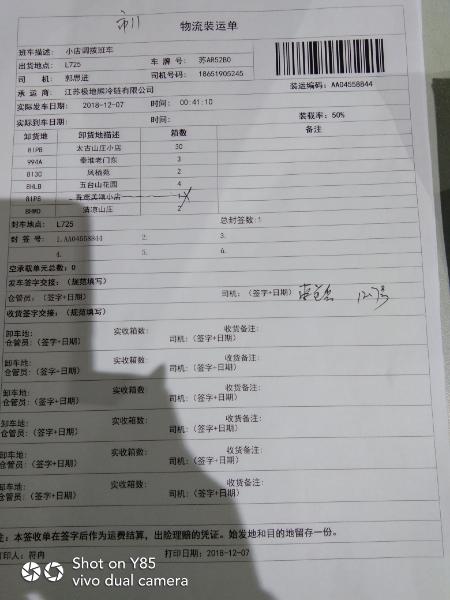 物流装运单
班车描述: 小店调拨班车
出货地点: L725 车 牌 号: 苏AR52B0
司 机: 郭思进 司机号码: 18651905245
承 运 商: 江苏极地熊冷链有限公司 装运编码: AA04558844
实际发车日期: 2018-12-07 时间: 00:41:10
实际到车日期: 时间: 装载率: 50%
卸货地 卸货地描述 箱数 备注
81PB 太古山庄小店 30
994A 秦淮老门东 3
8130 凤栖苑 2
8HLB 五台山花园 4
81P8
8HWD 清凉山庄 2
封车地点: L725 总封签数:1
封 签 号: 1.AA04558844 2. 3.
4. 5. 6.
空承载单元总数: 0
发车签字交接: (规范填写)
仓管员: (签字+日期) 司机: (签字+日期)
收货签字交接: (规范填写)
卸车地: 实收箱数: 收货备注:
仓管员: (签字+日期) 司机: (签字+日期)
卸车地: 实收箱数: 收货备注:
仓管员: (签字+日期) 司机: (签字+日期)
卸车地: 实收箱数: 收货备注:
仓管员: (签字+日期) 司机: (签字+日期)
卸车地: 实收箱数: 收货备注:
仓管员: (签字+日期) 司机: (签字+日期)
卸车地: 实收箱数: 收货备注:
仓管员: (签字+日期) 司机: (签字+日期)
卸车地: 实收箱数: 收货备注:
仓管员: (签字+日期) 司机: (签字+日期)
注: 本签收单在签字后作为运费结算, 出险理赔的凭证。始发地和目的地留存一份。
打印人: 符冉 打印日期: 2018-12-07
Shot on Y85
vivo dual camera